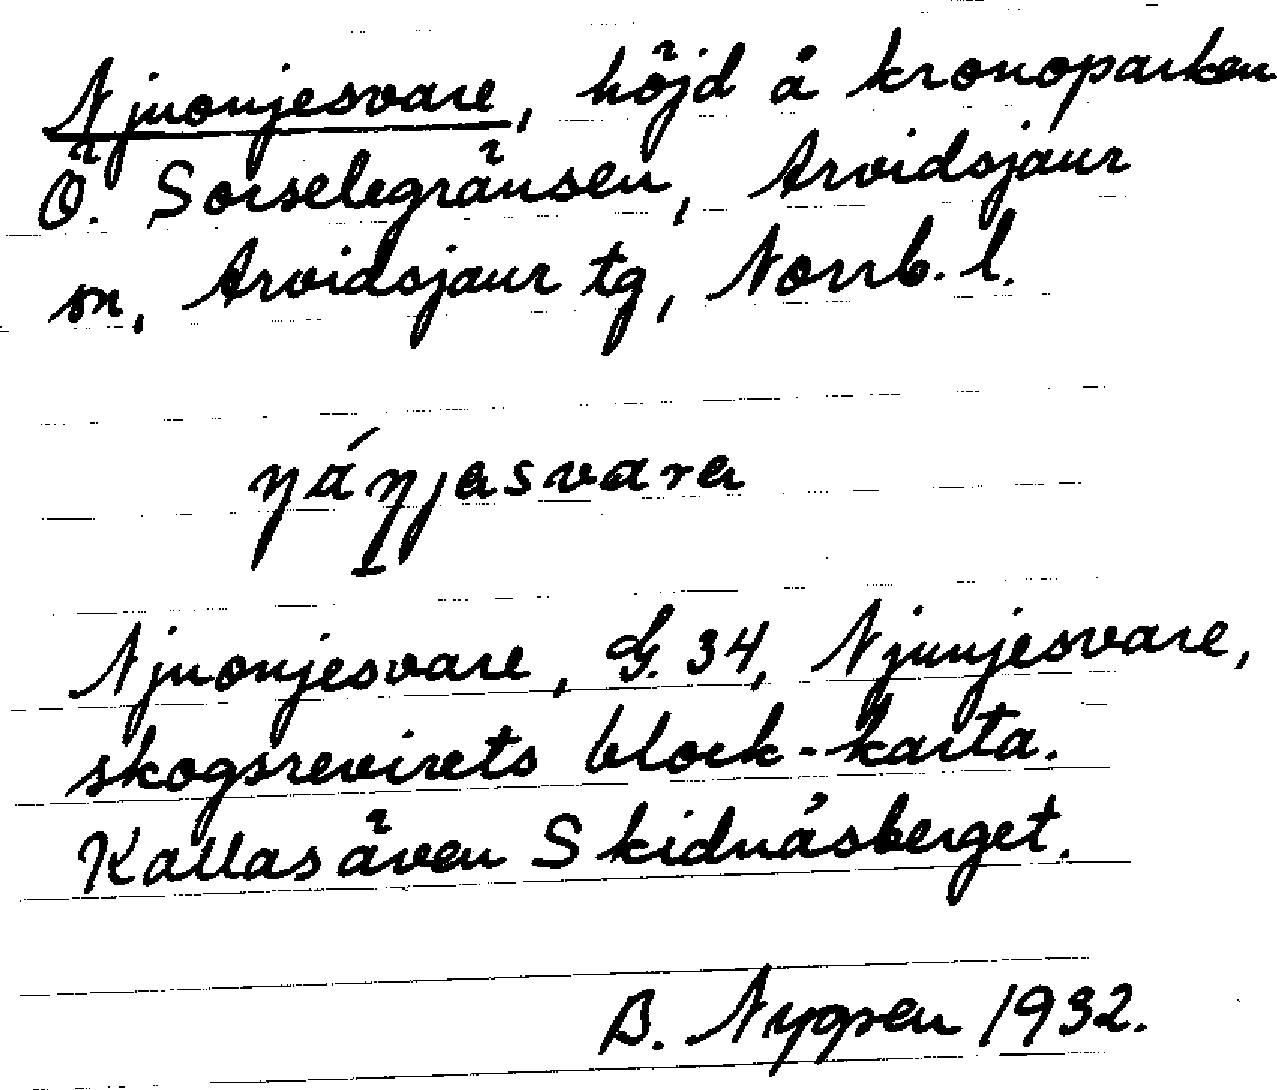 Njuonjesvare, höjd å kronoparken
Ö. Sorselegränsen, Arvidsjaur
sn, Arvidsjaur tg, Norrb. l.
ŋáŋjasvara
Njuonjesvare, G. 34, Njunjesvare,
skogsrevirets block-karta.
Kallas även Skidnåsberget.
B. Nygren 1932.